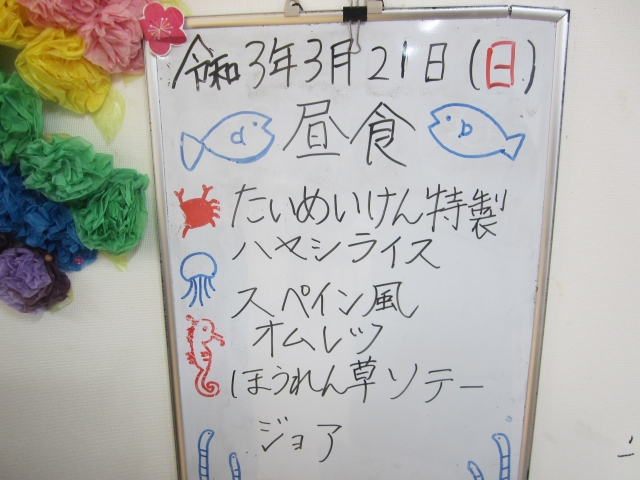 令和3年3月21日(日)
昼食
たいめいけん特製
ハヤシライス
スペイン風
オムレツ
ほうれん草ソテー
ジョア